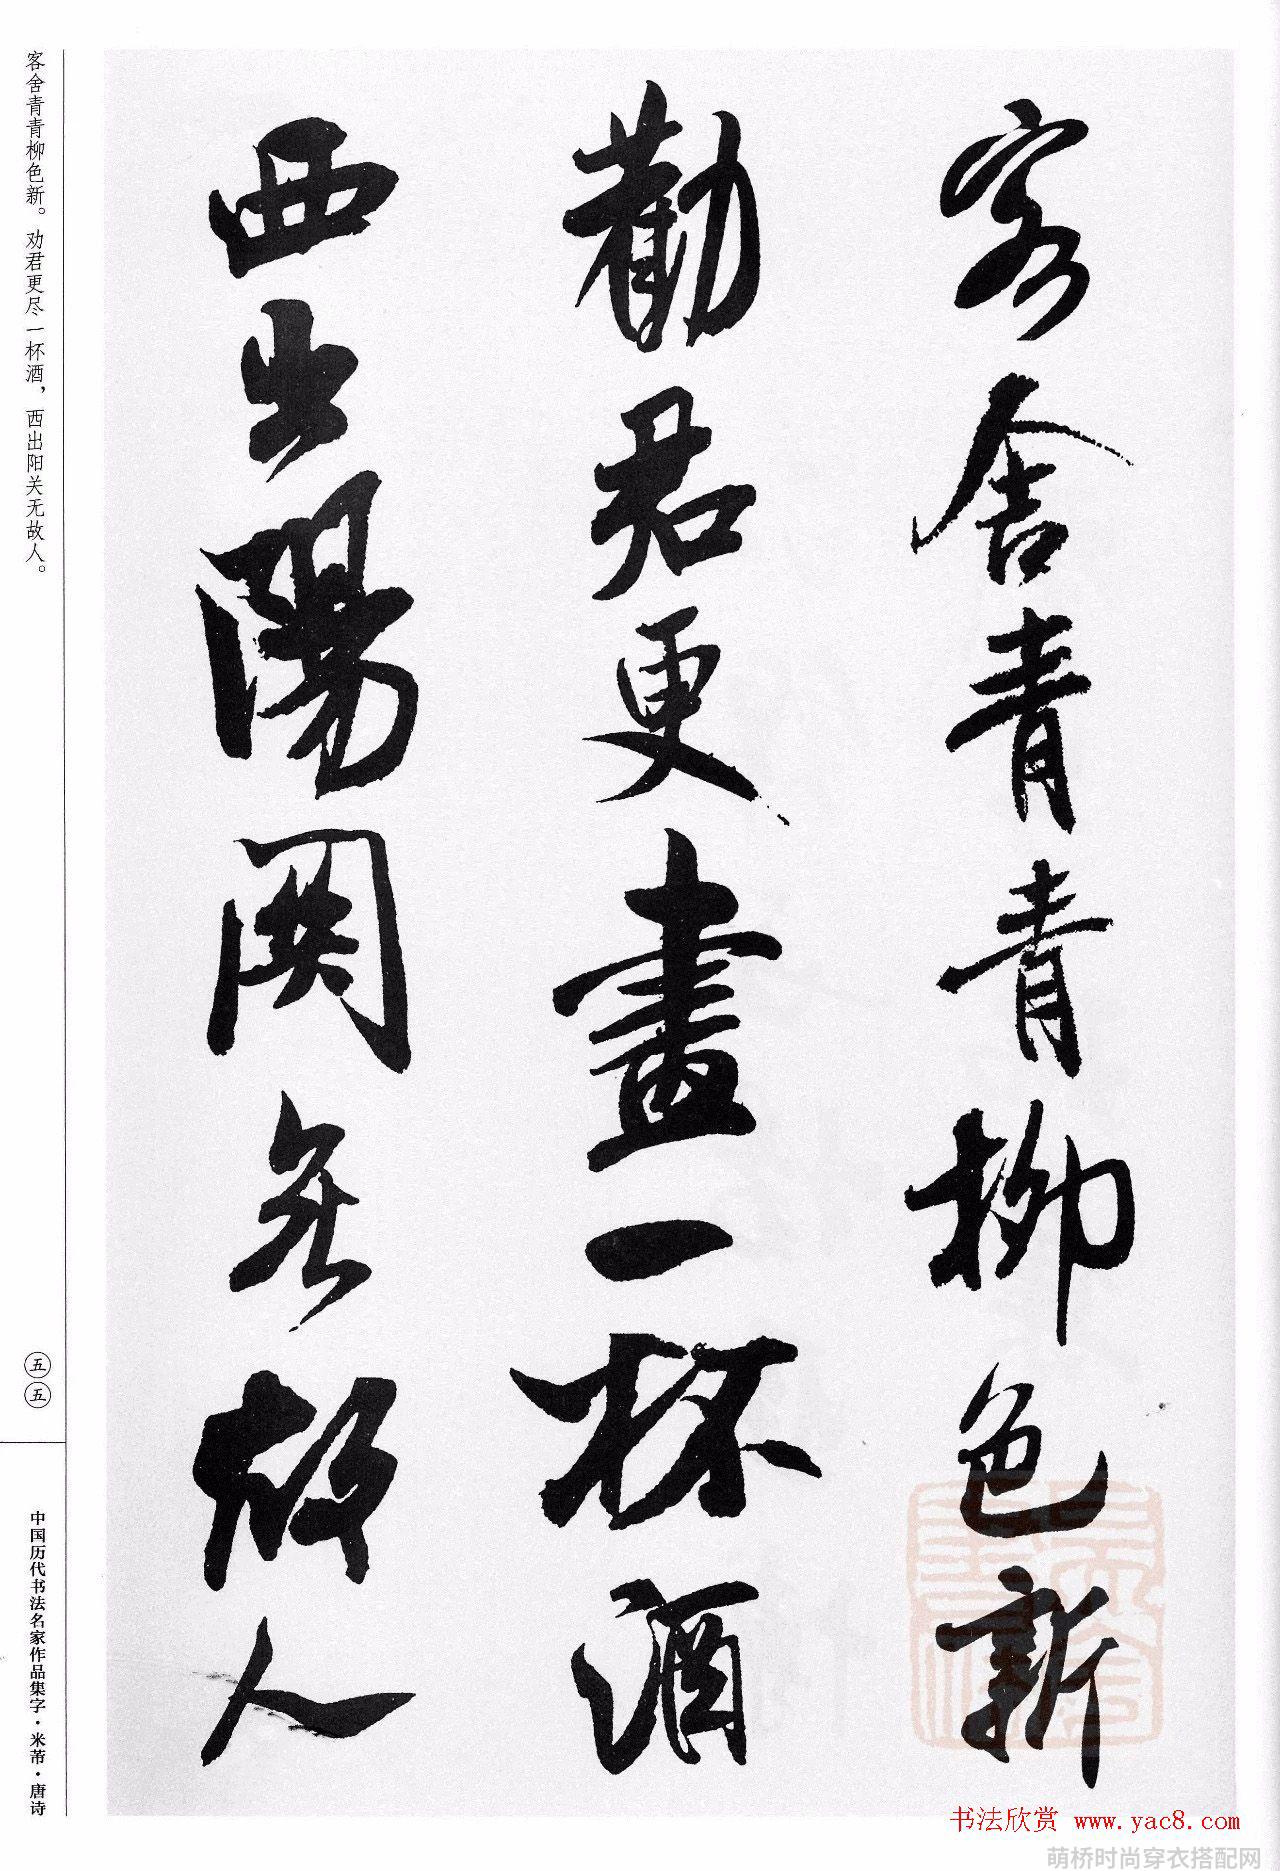 客舍青青柳色新
勸君更盡一杯酒
西出陽関无故人
客舍青青柳色新。劝君更尽一杯酒，西出阳关无故人。
五五
中国历代书法名家作品集字·米芾·唐诗
书法欣赏 www.yac8.com
萌桥时尚穿衣搭配网